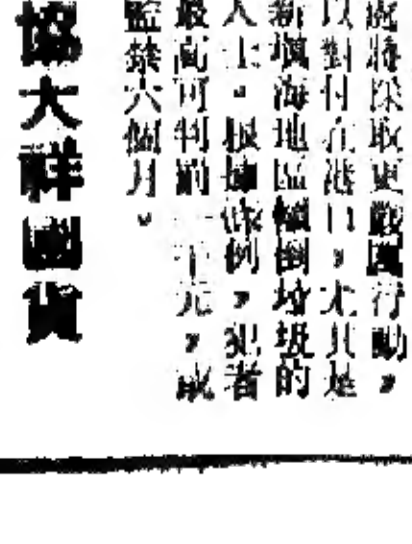 處將採取更嚴厲行動，
以對付在港口，尤其是
新填海地區傾倒垃圾的
人士。根據條例，犯者
最高可判罰一千元，或
監禁六個月。
協大祥國貨